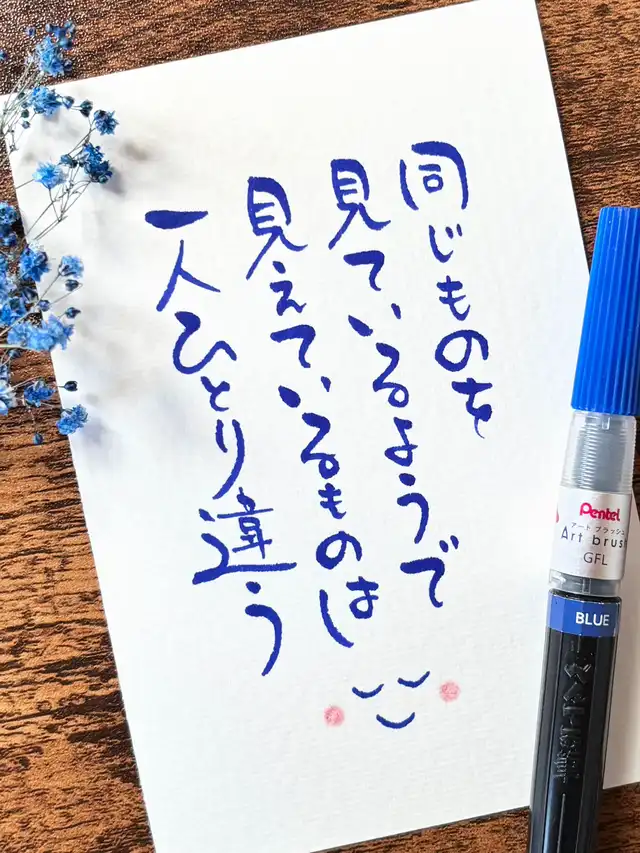 同じものを
見ているようで
見えているものは
一人ひとり違う
Pentel
アート ブラッシュ
Art brush
GFL
BLUE